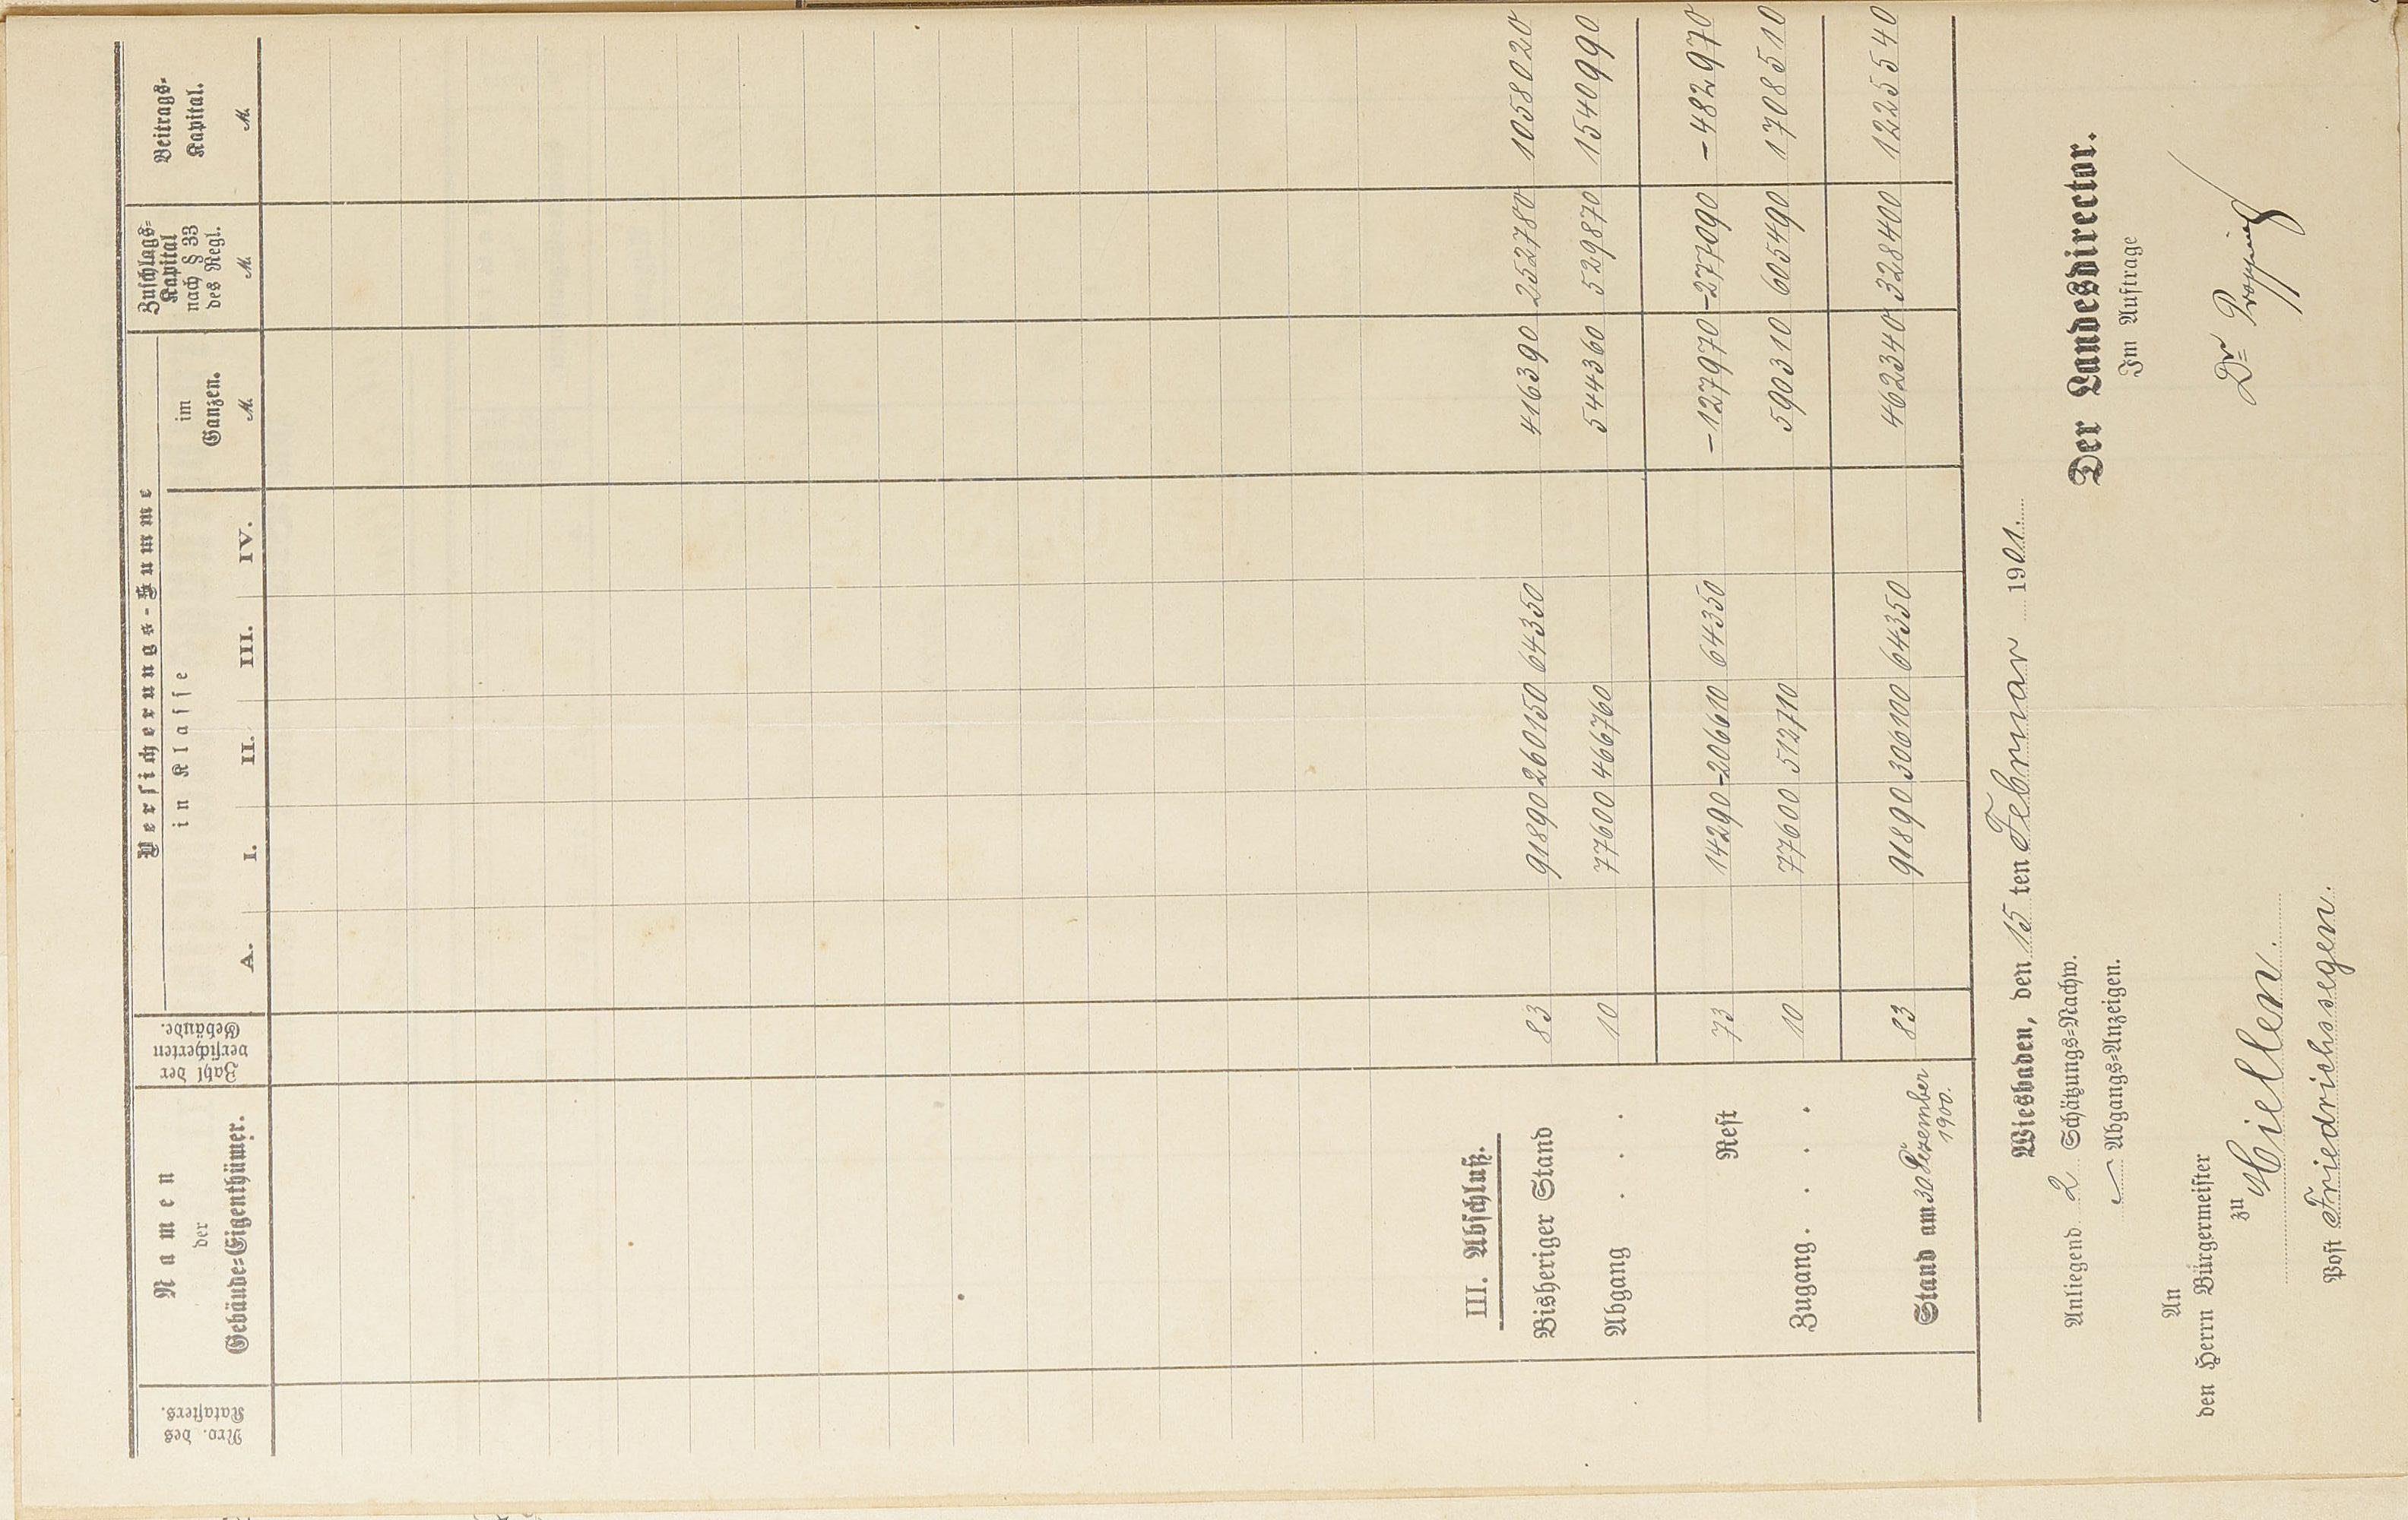 Nro. des Katasters.
Namen der Gebäude=Eigenthümer.
Zahl der versicherten Gebäude.
Versicherungs-Summe
in Klasse
A. I. II. III. IV.
im Ganzen. M.
Zuschlags= Kapital nach § 33 des Regl. M.
Beitrags= Kapital. M.
III. Abschluß.
Bisheriger Stand 83 91890 260150 64350 416390 252780 1058020
Abgang . . . 10 77600 466760 544360 529870 1540990
Rest 73 14290 -206610 64350 -127970 -277090 -482970
Zugang . . . . 10 77600 512710 590310 605490 1708510
Stand am 30 Dezember 1900. 83 91890 306100 64350 462340 328400 1225540
Wiesbaden, den 15 ten Februar 1901.
Anliegend 2 Schätzungs=Nachw.
Abgangs=Anzeigen.
Der Landesdirector.
Im Auftrage
Dr
An
den Herrn Bürgermeister
zu
Miellen.
Post Friedrichssegen.